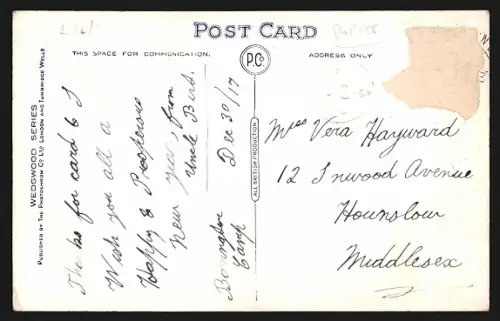 POST CARD
THIS SPACE FOR COMMUNICATION.
ADDRESS ONLY
P.Co.
ALL BRITISH PRODUCTION
WEDGWOOD SERIES
PUBLISHED BY THE PHOTOCHROM CO LTD LONDON AND TUNBRIDGE WELLS
Thanks for card & I
Wish you all a
Happy & Prosperous
New year, from
Uncle Bert.
Dec 30/17
Camp
Miss Vera Hayward
12 Inwood Avenue
Hounslow
Middlesex